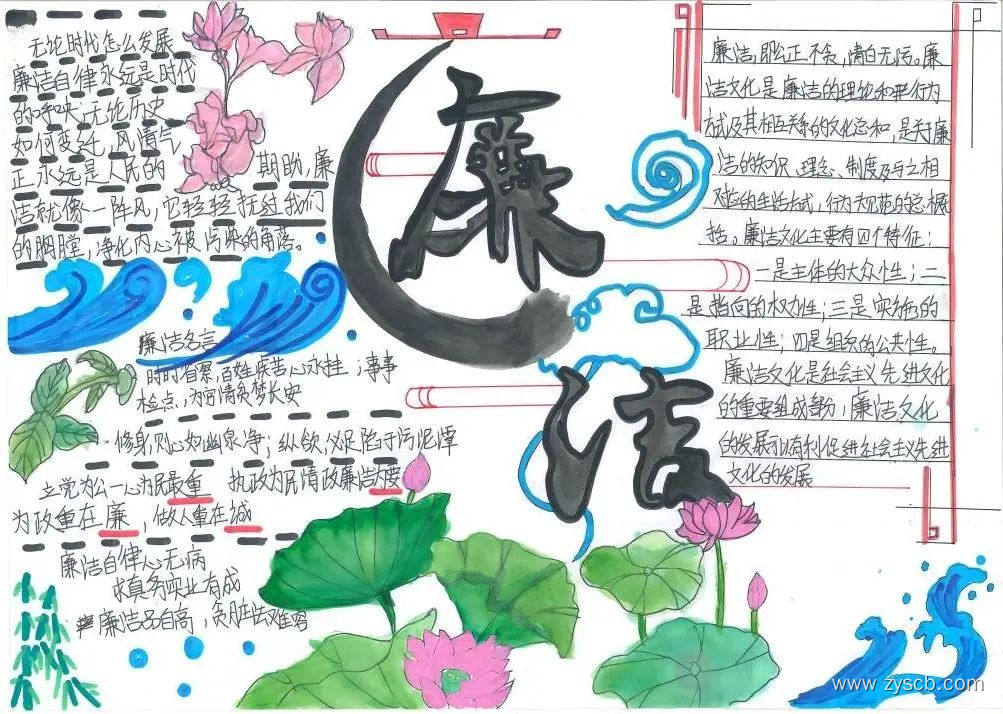 无论时代怎么发展
廉洁自律永远是时代
的呼唤;无论历史
如何变迁,风清气
正永远是人民的 期盼,廉
洁就像一阵风,它轻轻抚过我们
的胸膛,净化内心被污染的角落。
廉洁名言
时时省察,百姓疾苦心永挂;事事
检点,为官清贪梦长安
修身,则心如幽泉净;纵欲,必足陷于污泥潭
立党为公一心为民最重 执政为民清政廉洁为要
为政重在廉,做人重在诚
廉洁自律心无病
求真务实业有成
廉洁品自高,贪脏法难容
廉
洁
廉洁,即公正不贪,清白无污。廉
洁文化是廉洁的理论和
及其相互关系的文化总和,是关于廉
洁的知识、理念、制度及与之相
对应的生活方式,行为规范的总概
括。廉洁文化主要有四个特征:
一是主体的大众性;二
是指向的权力性;三是实施的
职业性;四是组织的公共性。
廉洁文化是社会主义先进文化
的重要组成部分,廉洁文化
的发展可以有利促进社会主义先进
文化的发展
www.zyscb.com